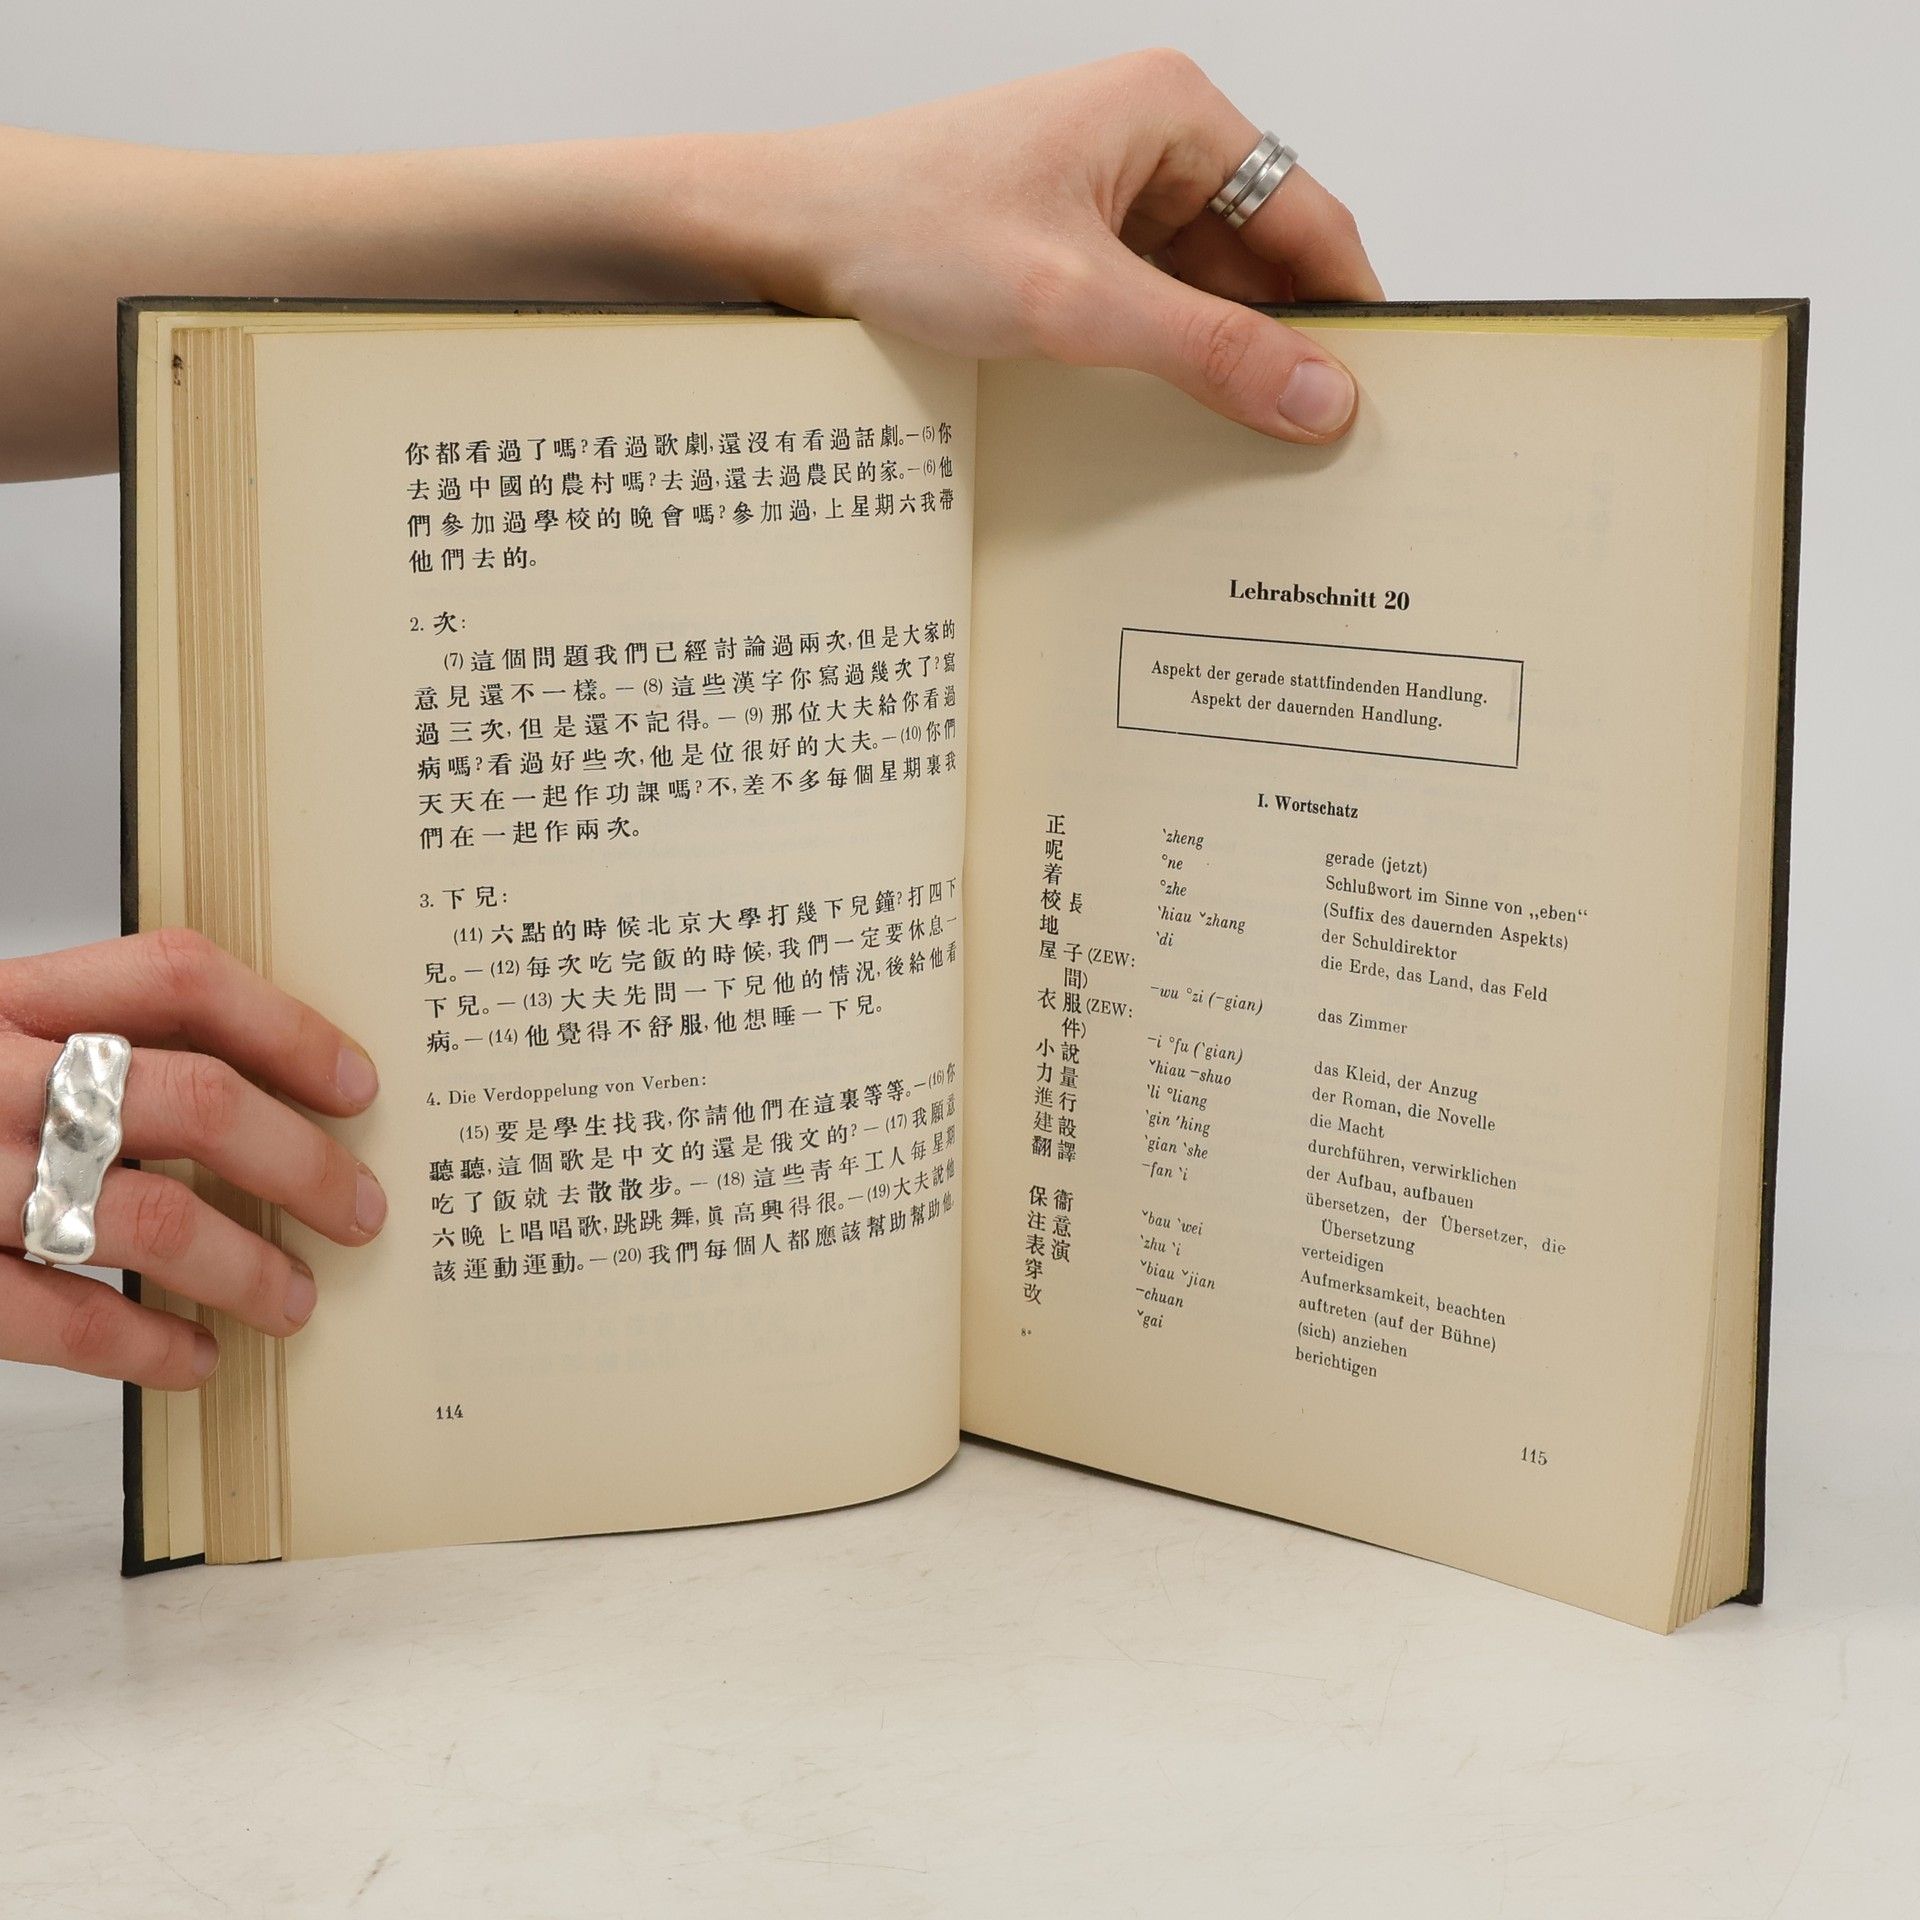 你都看過了嗎?看過歌劇,還沒有看過話劇。—(5)你
去過中國的農村嗎?去過,還去過農民的家。—(6)他
們參加過學校的晚會嗎?參加過,上星期六我帶
他們去的。
2. 次:
(7)這個問題我們已經討論過兩次,但是大家的
意見還不一樣。—(8)這些漢字你寫過幾次了?寫
過三次,但是還不記得。—(9)那位大夫給你看過
病嗎?看過好些次,他是位很好的大夫。—(10)你們
天天在一起作功課嗎?不,差不多每個星期裏我
們在一起作兩次。
3. 下兒:
(11)六點的時候北京大學打幾下兒鐘?打四下
兒。—(12)每次吃完飯的時候,我們一定要休息一
下兒。—(13)大夫先問一下兒他的情況,後給他看
病。—(14)他覺得不舒服,他想睡一下兒。
4. Die Verdoppelung von Verben:
(15)要是學生找我,你請他們在這裏等等。—(16)你
聽聽,這個歌是中文的還是俄文的?—(17)我願意
吃了飯就去散散步。—(18)這些靑年工人每星期
六晚上唱唱歌,跳跳舞,眞高興得很。—(19)大夫說他
該運動運動。—(20)我們每個人都應該幫助幫助他。
114
Lehrabschnitt 20
Aspekt der gerade stattfindenden Handlung.
Aspekt der dauernden Handlung.
I. Wortschatz
正 ˋzheng gerade (jetzt)
呢 °ne Schlußwort im Sinne von „eben“
着 °zhe (Suffix des dauernden Aspekts)
校長 ˋhiau ˇzhang der Schuldirektor
地 ˋdi die Erde, das Land, das Feld
屋子(ZEW:
間) ¯wu °zi (¯gian) das Zimmer
衣服(ZEW:
件) ¯i °fu (ˋgian) das Kleid, der Anzug
小說 ˇhiau ¯shuo der Roman, die Novelle
力量 ˋli °liang die Macht
進行 ˋgin ˊhing durchführen, verwirklichen
建設 ˋgian ˋshe der Aufbau, aufbauen
翻譯 ¯fan ˋi übersetzen, der Übersetzer, die
Übersetzung
保衞 ˇbau ˋwei verteidigen
注意 ˋzhu ˋi Aufmerksamkeit, beachten
表演 ˇbiau ˇjian auftreten (auf der Bühne)
穿 ¯chuan (sich) anziehen
改 ˇgai berichtigen
8*
115